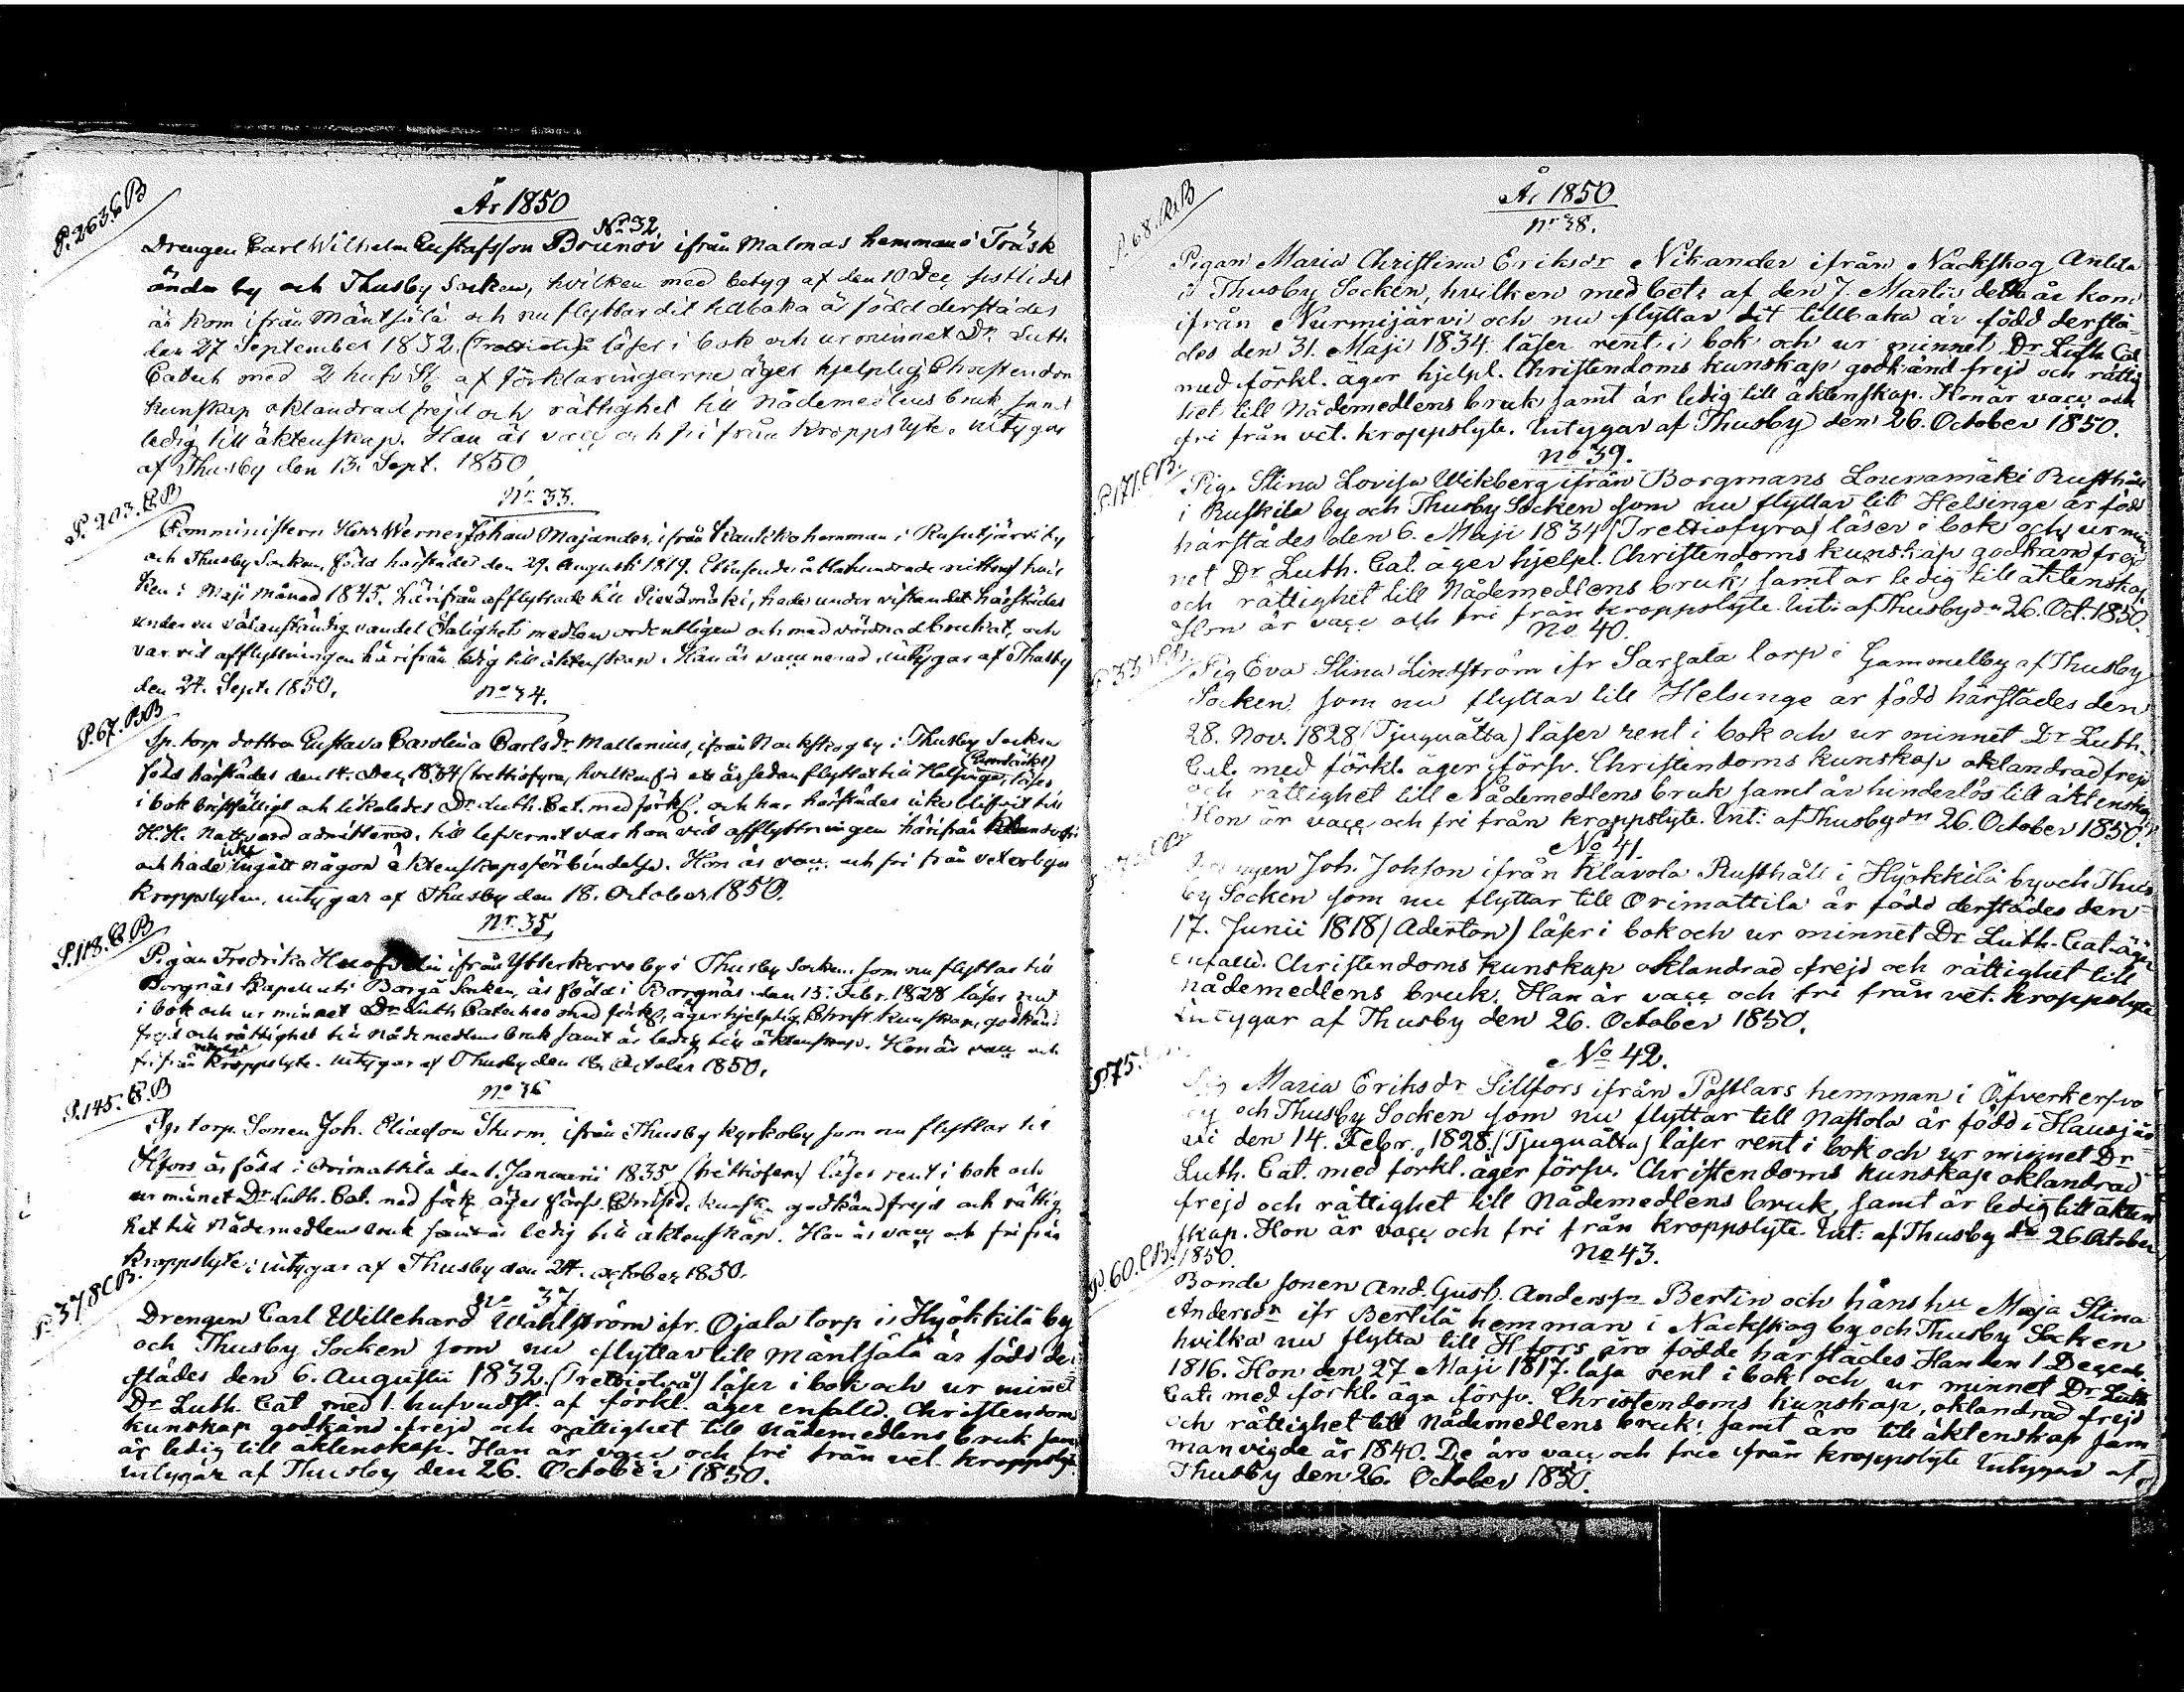 År 1850
P. 263. C B
No 32.
Drengen Carl Wilhelm Gustafsson Brunou ifrån Malmas hemman i Träsk
ända by och Thusby Socken, hvilken med betyg af den 10 Dec sistlidet
år kom ifrån Mäntsälä och nu flyttar dit tillbaka är född derstädes
den 27 September 1832. (Trettiotvå) läser i bok och ur minnet Dr. Luth.
Catech med 2 hufv St. af förklaringarne äger hjelplig Christendoms
kunskap oklandrad frejd och rättighet till Nådemedlens bruk samt
ledig till äktenskap. Han är vacc och fri från Kroppslyte. intygar
af Thusby den 13. Sept. 1850
P. 203. C B
No 33.
Comministern Herr Werner Johan Majander, ifrån Paulikko hemman i Rusutjärvi by
och Thusby Socken, född härstädes den 29. Augusti 1819. Ettusende åttahundrade nitton, hvil
ken i Maji månad 1845. härifrån afflyttade till Pieksämäki, hade under vistandet härstädes
under en välanständig vandel Salighets medlen ordentligen och med vördnad brukat, och
var vid afflyttningen härifrån ledig till äktenskap. Han är vaccinerad. intygar af Thusby
den 24. Sept. 1850.
No 34.
P. 67. C B
Sp. torp dottra Gustava Carolina Carlsdr. Mallenius, ifrån Nackskog by i Thusby Socken
född härstädes den 14. Dec. 1834 (trettiofyra, hvilken för ett år sedan flyttat till Helsinge, läser
i bok bristfälligt och likaledes Dr. Luth. Cat. med förkl. och har härstädes icke blifvit till
H. H. Nattvard admitterad. till lefvernet var hon vid afflyttningen härifrån
och hade icke ingått någon äktenskapsförbindelse. Hon är vacc. och fri från
kroppslyten, intygar af Thusby den 18. October 1850.
P. 118. C B
No 35.
Pigan Fredrika ifrån Ytterkervo by i Thusby Socken, som nu flyttar till
Borgnäs Kapell uti Borgå Socken, är född i Borgnäs den 15. Febr. 1828 läser rent
i bok och ur minnet Dr. Luth Cateches med förkl, äger hjelplig Christ. Kunskap, godkänd
frejd och rättighet till Nådemedlens bruk samt är ledig till äktenskap. Hon är vacc och
fri från Kroppslyte. intygar af Thusby den 18. October 1850.
P. 145. C. B
No 36
Sp. torp. Sonen Joh. Eliasson Sturm, ifrån Thusby Kyrkoby som nu flyttar till
Hfors är född i Orimattila den 1. Januarii 1835 (trettiofem) läser rent i bok och
ur minnet Dr. Luth. Cat. med förk. äger försv. Christd. kunsk. godkänd frejd och rättig
het till Nådemedlens bruk samt är ledig till äktenskap. Han är vacc och fri från
kroppslyte; intygar af Thusby den 24. October 1850.
P. 378 C B.
No 37.
Drengen Carl Willehard Wahlström ifr. Ojala torp i Hyökkilä by
och Thusby Socken som nu flyttar till Mäntsälä är född der
städes den 6. Augustii 1832. (Trettiotvå) läser i bok och ur minnet
Dr. Luth. Cat med 1. hufvudst. af förkl. äger enfald. Christendoms
kunskap godkänd frejd och rättighet till Nådemedlens bruk samt
är ledig till äktenskap. Han är vacc och fri från vet. kroppslyt.
intygar af Thusby den 26. October 1850.
År 1850
P. 68. C B
No 38.
Pigan Maria Christina Eriksdr Nikander ifrån Nackskog Anttila
i Thusby Socken, hvilken med bet: af den 7. Martii detta år kom
ifrån Nurmijärvi och nu flyttar dit tillbaka är född derstä-
des den 31. Maji 1834. läser rent i bok och ur minnet Dr Luth Cat
med förkl. äger hjelpl. Christendoms kunskap godkänd frejd och rättig
het till Nådemedlens bruk samt är ledig till äktenskap. Hon är vacc och
fri från vet. kroppslyte. Intygar af Thusby den 26. October 1850.
P. 171. C B.
No 39.
Pig. Stina Lovisa Wikberg ifrån Borgmans Lounamäki Rusthåll
i Ruskila by och Thusby Socken som nu flyttar till Helsinge är född
härstädes den 6. Maji 1834 (Trettiofyra) läser i bok och ur min
net Dr Luth. Cat. äger hjelpl. Christendoms kunskap godkänd frejd
och rättighet till Nådemedlens bruk samt är ledig till äktenskap.
Hon är vacc och fri från kroppslyte. Int: af Thusby dn 26. Oct. 1850.
No 40.
Pig Eva Stina Lindström ifr Sarsala torp i Gammelby af Thusby
Socken som nu flyttar till Helsinge är född härstädes den
28. Nov. 1828 (Tjuguåtta) läser rent i bok och ur minnet Dr Luth.
Cat. med förkl. äger försv. Christendoms kunskap oklandrad frejd
och rättighet till Nådemedlens bruk samt är hinderlös till äktenskap
Hon är vacc och fri från kroppslyte. Int: af Thusby dn 26. October 1850.
No 41.
Drengen Joh. Johsson ifrån Klavola Rusthåll i Hyökkilä by och Thus
by Socken som nu flyttar till Orimattila är född derstädes den
17. Junii 1818 (Aderton) läser i bok och ur minnet Dr Luth. Cat. äger
enfald. Christendoms kunskap oklandrad frejd och rättighet till
nådemedlens bruk. Han är vacc och fri från vet. kroppslyte
intygar af Thusby den 26. October 1850.
P. 75.
No 42.
Pig Maria Eriksdr Sillfors ifrån Postlars hemman i Öfverkervo
by och Thusby Socken som nu flyttar till Nastola är född i Hausjär
vi den 14. Febr. 1828. (Tjuguåtta) läser rent i bok och ur minnet Dr
Luth. Cat. med förkl. äger försv. Christendoms kunskap oklandrad
frejd och rättighet till Nådemedlens bruk, samt är ledig till äkten
skap. Hon är vacc och fri från kroppslyte. Int: af Thusby dn 26 October
1850.
P. 60. C B.
No 43.
Bonde sonen And. Gust. Anderssn Bertin och hans hu Maja Stina
Andersdr ifr Bertilä hemman i Nackskog by och Thusby Socken
hvilka nu flytta till Hfors äro födde härstädes Han den 1 Decemb.
1816. Hon den 27 Maji 1817. läsa rent i bok och ur minnet Dr Luth
Cat. med förkl. äga försv. Christendoms kunskap, oklandrad frejd
och rättighet till Nådemedlens bruk: samt äro till äktenskap sam
manvigde år 1840. De äro vacc och frie ifrån kroppslyte Intygar af
Thusby den 26. October 1850.